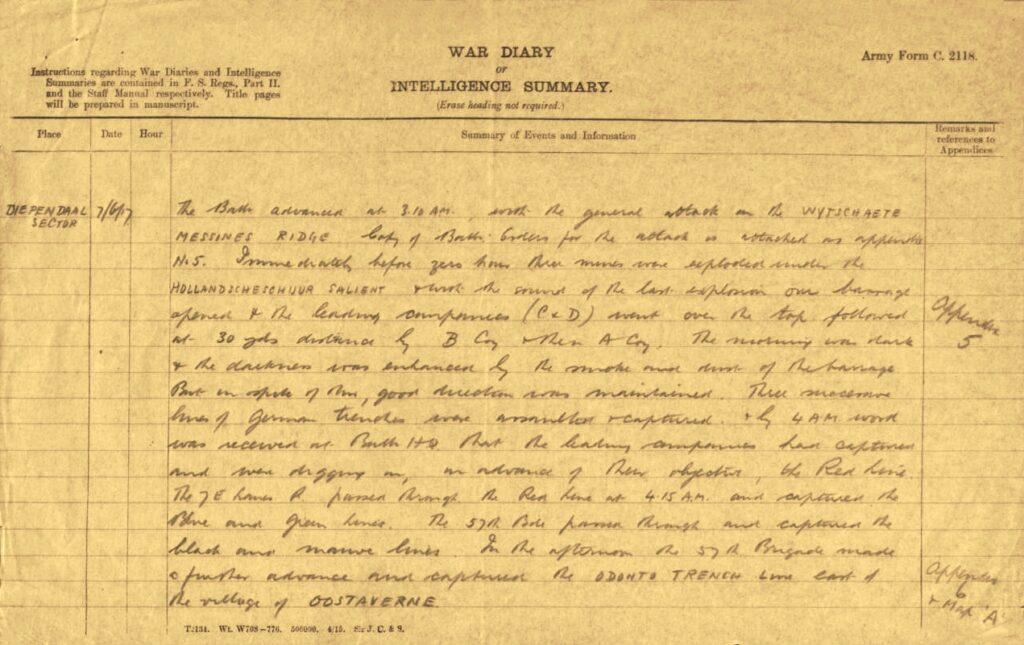 WAR DIARY
or
INTELLIGENCE SUMMARY.
(Erase heading not required.)
Army Form C. 2118.
Instructions regarding War Diaries and Intelligence
Summaries are contained in F. S. Regs., Part II.
and the Staff Manual respectively. Title pages
will be prepared in manuscript.
Place
Date
Hour
Summary of Events and Information
Remarks and
references to
Appendices
DIEPENDAAL
SECTOR
7/6/17
The Battn advanced at 3.10 AM. with the general attack on the WYTSCHAETE
MESSINES RIDGE Copy of Battn Orders for the attack is attached as appendix
No. 5. Immediately before zero hour three mines were exploded under the
HOLLANDSCHESCHUUR SALIENT & with the sound of the last explosion our barrage
opened & the leading companies (C & D) went over the top followed
at 30 yds distance by B Coy & then A Coy. The morning was dark
& the darkness was enhanced by the smoke and dust of the barrage
But in spite of this, good direction was maintained. Three successive
lines of German trenches were assaulted & captured. & by 4 AM word
was received at Battn HQ that the leading companies had captured
and were digging in, in advance of their objective, the Red Line.
The 7 E Lancs R passed through the Red Line at 4.15 AM. and captured the
Blue and Green Lines. The 57th Bde passed through and captured the
black and mauve lines. In the afternoon the 57th Brigade made
a further advance and captured the ODONTO TRENCH Line east of
the village of OOSTAVERNE
Appendix
5
Appendix
6
& Map 'A'
T.134. Wt. W708–776. 500000. 4/15. Sir J. C. & S.